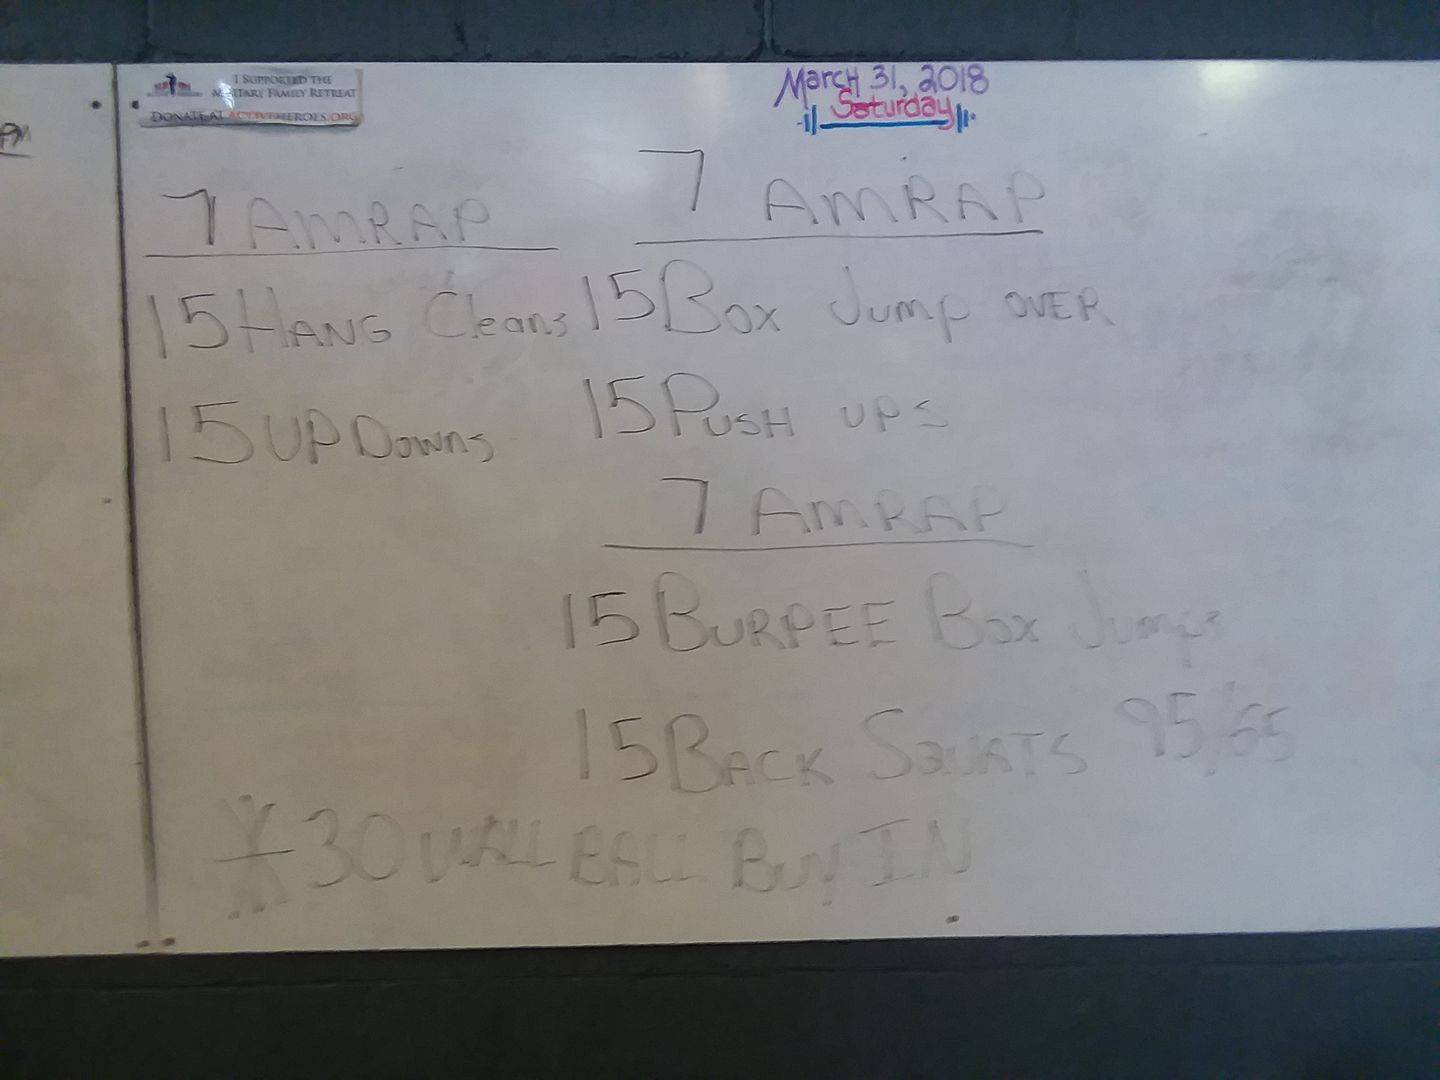 I SUPPORTED THE
MILITARY FAMILY RETREAT
DONATE AT ACTIVEHEROES.ORG
March 31, 2018
Saturday
PM
7 AMRAP
15 HANG Cleans
15 UP Downs
7 AMRAP
15 Box Jump OVER
15 PUSH UPS
7 AMRAP
15 BURPEE Box Jumps
15 BACK SQUATS 95/65
* 30 WALL BALL BUY IN